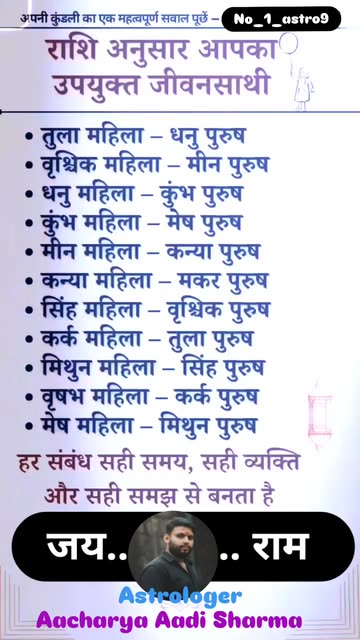 अपनी कुंडली का एक महत्वपूर्ण सवाल पूछें –
No_1_astro9
राशि अनुसार आपका
उपयुक्त जीवनसाथी
• तुला महिला – धनु पुरुष
• वृश्चिक महिला – मीन पुरुष
• धनु महिला – कुंभ पुरुष
• कुंभ महिला – मेष पुरुष
• मीन महिला – कन्या पुरुष
• कन्या महिला – मकर पुरुष
• सिंह महिला – वृश्चिक पुरुष
• कर्क महिला – तुला पुरुष
• मिथुन महिला – सिंह पुरुष
• वृषभ महिला – कर्क पुरुष
• मेष महिला – मिथुन पुरुष
हर संबंध सही समय, सही व्यक्ति
और सही समझ से बनता है
जय.. .. राम
Astrologer
Aacharya Aadi Sharma